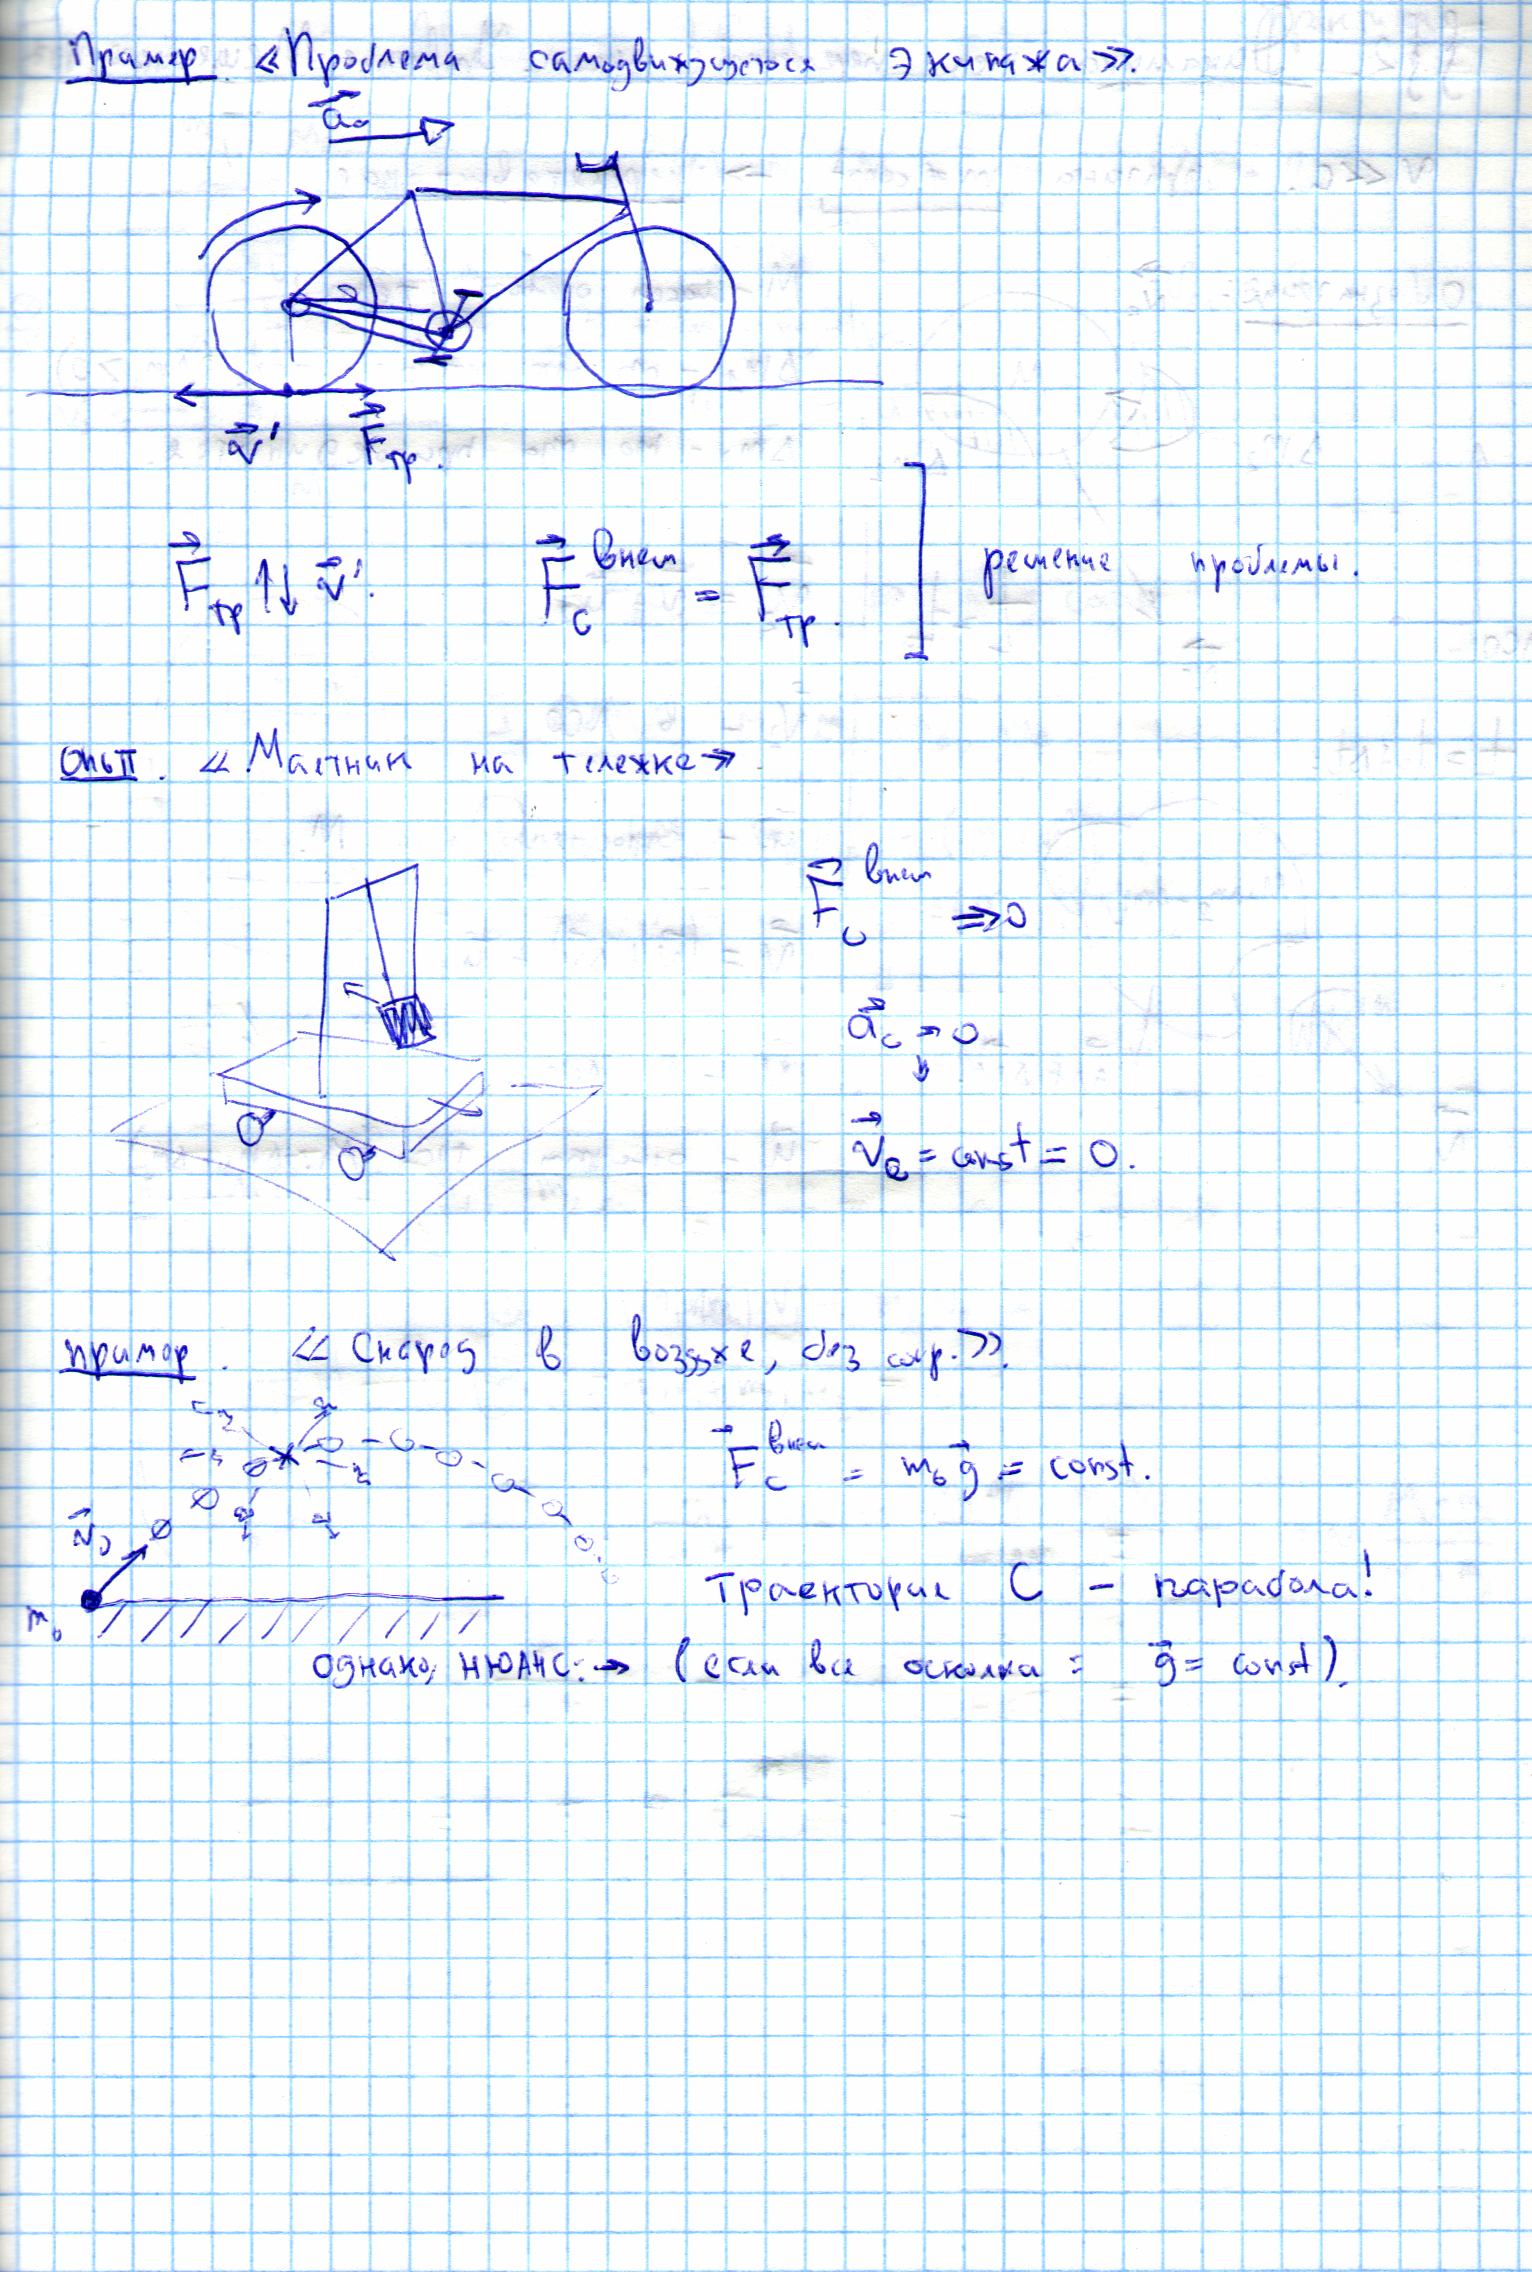 Пример. «Проблема самодвижущегося экипажа».
a₀
v' Fтр.
Fтр ↑↓ v'. Fс внеш = Fтр. ] решение проблемы.
Опыт. «Маятник на тележке»
Fс внеш ⇒ 0
aс = 0
↓
vс = const = 0.
Пример. «Снаряд в воздухе, без сопр.».
Fс внеш = m₀g = const.
v₀
m₀
Траектория С – парабола!
однако, НЮАНС: → (если все осколки = g = const).